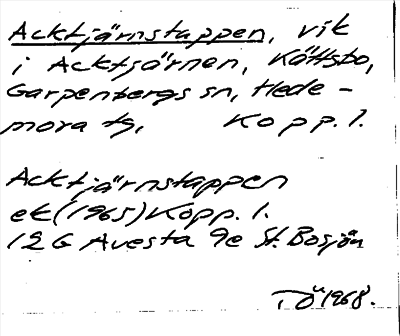 Acktjärnstappen, vik
i Acktjärnen, Kättsbo,
Garpenbergs sn, Hede-
mora tg, Kopp. l.
Acktjärnstappen
ek (1965) Kopp. l.
12 G Avesta 9e St. Bosjön
TÖ 1968.